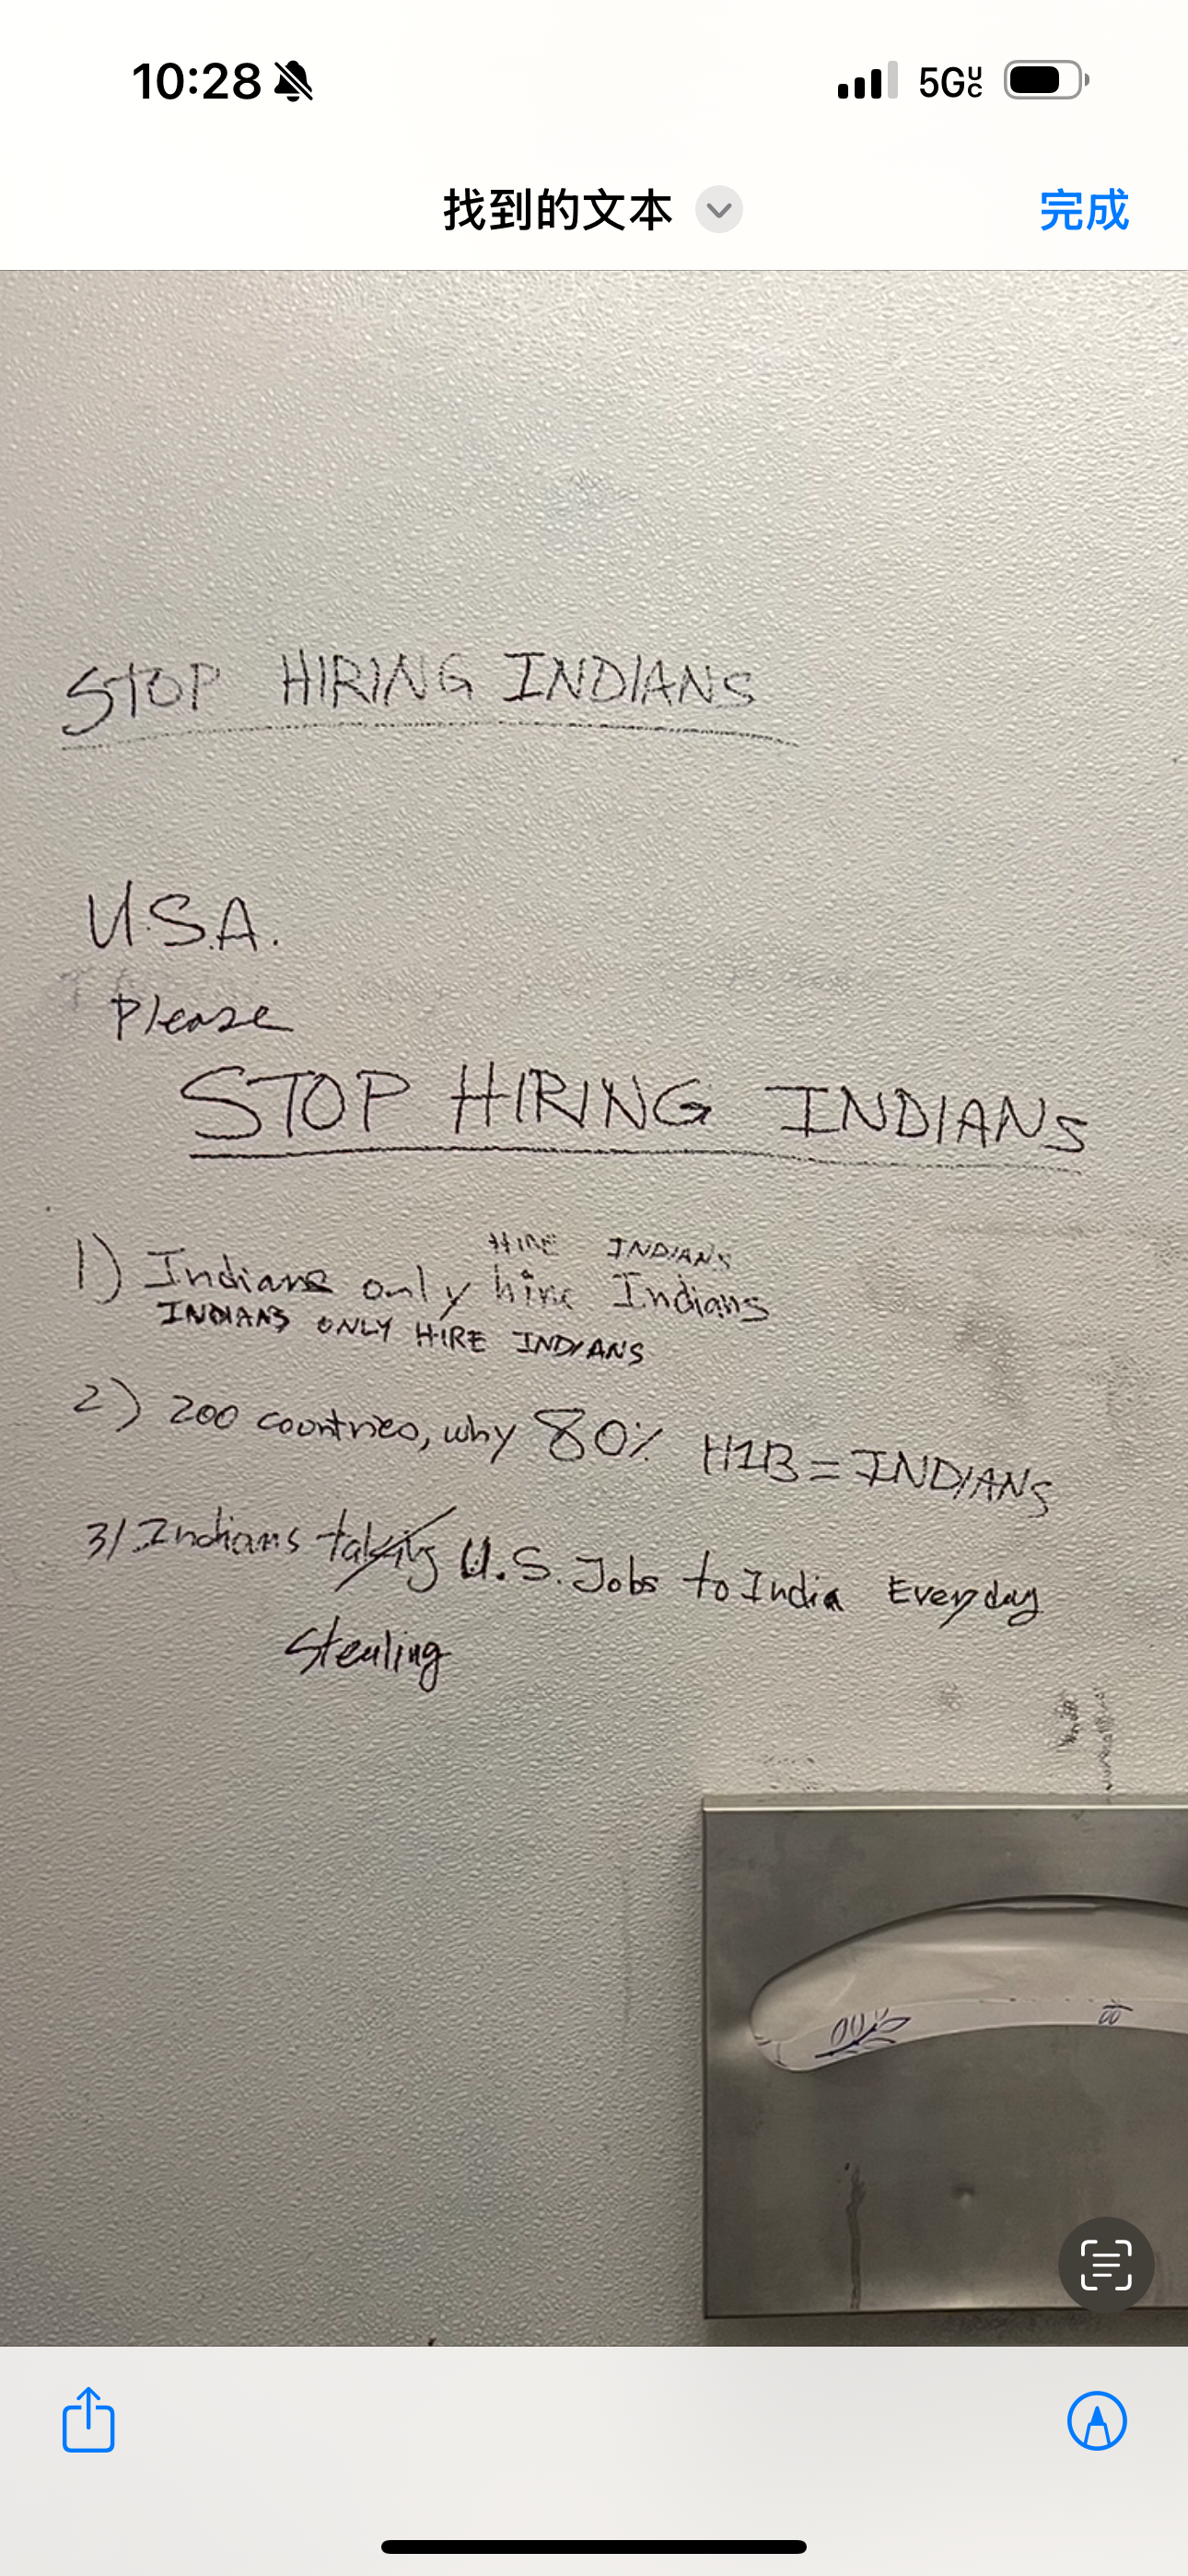 10:28
5GUC
找到的文本
完成
STOP HIRING INDIANS
U.S.A.
Please
STOP HIRING INDIANS
HIRE INDIANS
1) Indians only hire Indians
INDIANS ONLY HIRE INDIANS
2) 200 countries, why 80% H1B = INDIANS
3/ Indians taking U.S. Jobs to India Everyday
Stealing